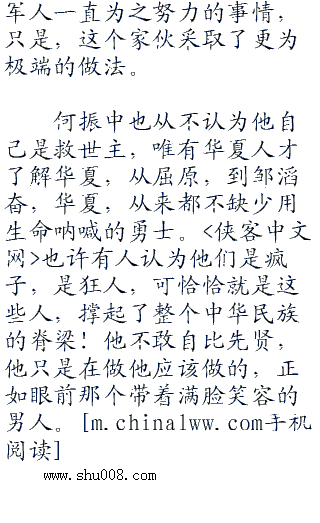 军人一直为之努力的事情，
只是，这个家伙采取了更为
极端的做法。
何振中也从不认为他自
己是救世主，唯有华夏人才
了解华夏，从屈原，到邹滔
奋，华夏，从来都不缺少用
生命呐喊的勇士。<侠客中文
网>也许有人认为他们是疯
子，是狂人，可恰恰就是这
些人，撑起了整个中华民族
的脊梁！他不敢自比先贤，
他只是在做他应该做的，正
如眼前那个带着满脸笑容的
男人。[m.china1ww.com手机
阅读]
www.shu008.com